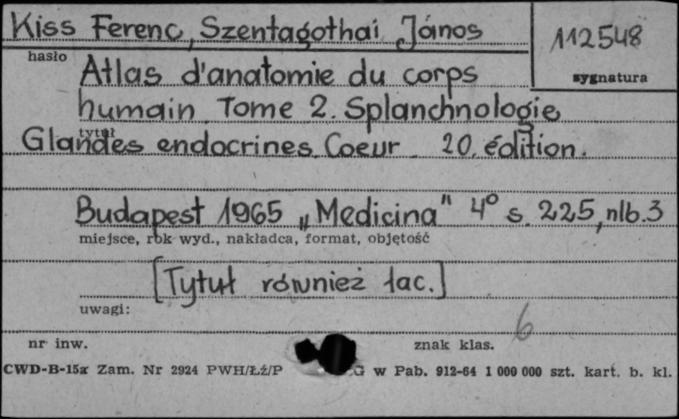 Kiss Ferenc, Szentagothai János
112548
hasło
sygnatura
Atlas d'anatomie du corps
humain Tome 2. Splanchnologie
tytuł
Glandes endocrines. Coeur 20. édition.
Budapest 1965 „Medicina" 4° s. 225, nlb. 3
miejsce, rok wyd., nakładca, format, objętość
[Tytuł również łac.]
uwagi:
6
nr inw.
znak klas.
CWD-B-15a Zam. Nr 2924 PWH/Łź/P G w Pab. 912-64 1 000 000 szt. kart. b. kl.